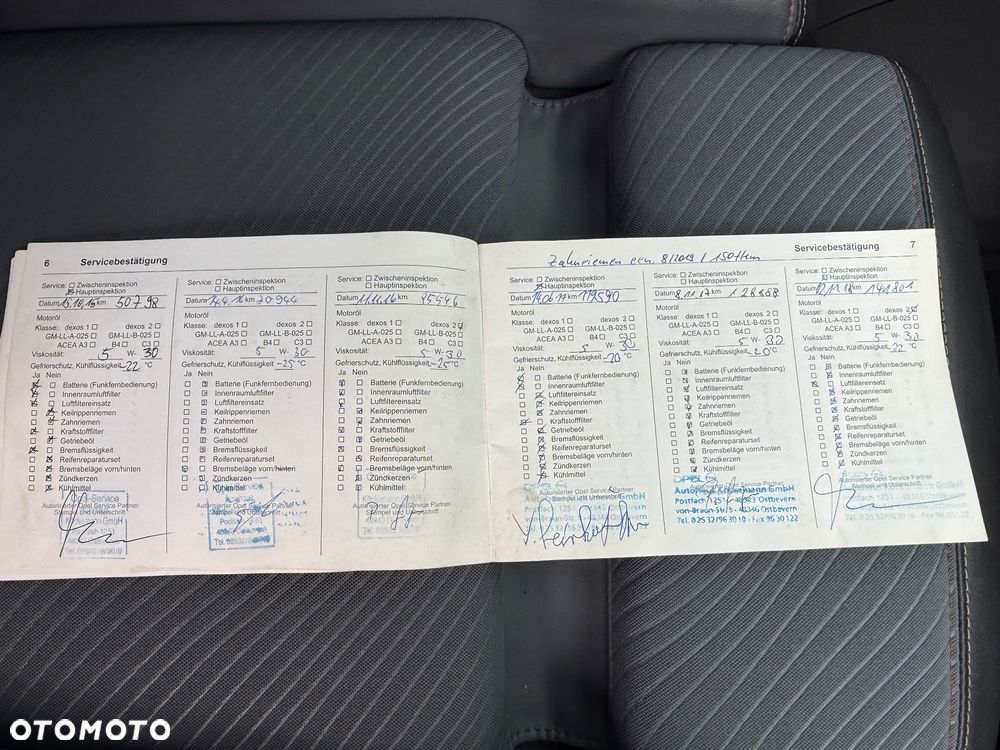 6 Servicebestätigung
Service: Zwischeninspektion
Hauptinspektion
Datum 15.10.15 km 50798
Motoröl
Klasse: dexos 1 dexos 2
GM-LL-A-025 GM-LL-B-025
ACEA A3 B4 C3
Viskosität: 5 W- 30
Gefrierschutz, Kühlflüssigkeit -22 °C
Ja Nein
Batterie (Funkfernbedienung)
Innenraumluftfilter
Luftfiltereinsatz
Keilrippenriemen
Zahnriemen
Kraftstofffilter
Getriebeöl
Bremsflüssigkeit
Reifenreparaturset
Bremsbeläge vorn/hinten
Zündkerzen
Kühlmittel
Autorisierter Opel Service Partner
Stempel und Unterschrift
Opel-Service
Service: Zwischeninspektion
Hauptinspektion
Datum 4.4.16 km 70944
Motoröl
Klasse: dexos 1 dexos 2
GM-LL-A-025 GM-LL-B-025
ACEA A3 B4 C3
Viskosität: 5 W- 30
Gefrierschutz, Kühlflüssigkeit -25 °C
Ja Nein
Batterie (Funkfernbedienung)
Innenraumluftfilter
Luftfiltereinsatz
Keilrippenriemen
Zahnriemen
Kraftstofffilter
Getriebeöl
Bremsflüssigkeit
Reifenreparaturset
Bremsbeläge vorn/hinten
Zündkerzen
Kühlmittel
Autorisierter Opel Service Partner
Stempel und Unterschrift
Service: Zwischeninspektion
Hauptinspektion
Datum 11.11.16 km 95546
Motoröl
Klasse: dexos 1 dexos 2
GM-LL-A-025 GM-LL-B-025
ACEA A3 B4 C3
Viskosität: 5 W- 30
Gefrierschutz, Kühlflüssigkeit -25 °C
Ja Nein
Batterie (Funkfernbedienung)
Innenraumluftfilter
Luftfiltereinsatz
Keilrippenriemen
Zahnriemen
Kraftstofffilter
Getriebeöl
Bremsflüssigkeit
Reifenreparaturset
Bremsbeläge vorn/hinten
Zündkerzen
Kühlmittel
Autorisierter Opel Service Partner
Stempel und Unterschrift
Servicebestätigung 7
Zahnriemen ern. 8/2019 / 150tkm
Service: Zwischeninspektion
Hauptinspektion
Datum 19.06.17 km 119590
Motoröl
Klasse: dexos 1 dexos 2
GM-LL-A-025 GM-LL-B-025
ACEA A3 B4 C3
Viskosität: 5 W- 30
Gefrierschutz, Kühlflüssigkeit -20 °C
Ja Nein
Batterie (Funkfernbedienung)
Innenraumluftfilter
Luftfiltereinsatz
Keilrippenriemen
Zahnriemen
Kraftstofffilter
Getriebeöl
Bremsflüssigkeit
Reifenreparaturset
Bremsbeläge vorn/hinten
Zündkerzen
Kühlmittel
Autorisierter Opel Service Partner
Stempel und Unterschrift
Service: Zwischeninspektion
Hauptinspektion
Datum 8.11.17 km 128858
Motoröl
Klasse: dexos 1 dexos 2
GM-LL-A-025 GM-LL-B-025
ACEA A3 B4 C3
Viskosität: 5 W- 30
Gefrierschutz, Kühlflüssigkeit -20 °C
Ja Nein
Batterie (Funkfernbedienung)
Innenraumluftfilter
Luftfiltereinsatz
Keilrippenriemen
Zahnriemen
Kraftstofffilter
Getriebeöl
Bremsflüssigkeit
Reifenreparaturset
Bremsbeläge vorn/hinten
Zündkerzen
Kühlmittel
OPEL
GmbH
Postfach 1251 · 48343 Ostbevern
von-Braun-Str. 5 · 48346 Ostbevern
Tel. 0 25 32/96 30 10 · Fax 96 30 122
Service: Zwischeninspektion
Hauptinspektion
Datum 12.11.18 km 141801
Motoröl
Klasse: dexos 1 dexos 2
GM-LL-A-025 GM-LL-B-025
ACEA A3 B4 C3
Viskosität: 5 W- 30
Gefrierschutz, Kühlflüssigkeit -22 °C
Ja Nein
Batterie (Funkfernbedienung)
Innenraumluftfilter
Luftfiltereinsatz
Keilrippenriemen
Zahnriemen
Kraftstofffilter
Getriebeöl
Bremsflüssigkeit
Reifenreparaturset
Bremsbeläge vorn/hinten
Zündkerzen
Kühlmittel
Autorisierter Opel Service Partner
Stempel und Unterschrift
OTOMOTO